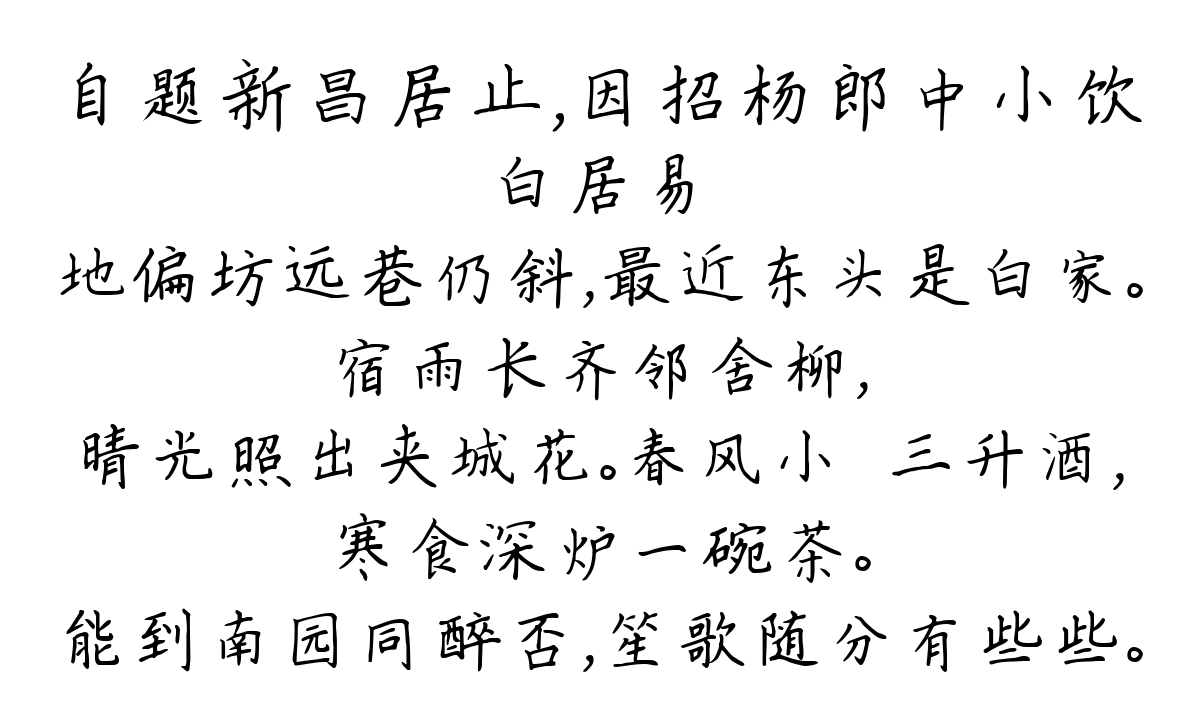 自题新昌居止,因招杨郎中小饮
白居易
地偏坊远巷仍斜,最近东头是白家。
宿雨长齐邻舍柳,
晴光照出夹城花。春风小 三升酒,
寒食深炉一碗茶。
能到南园同醉否,笙歌随分有些些。